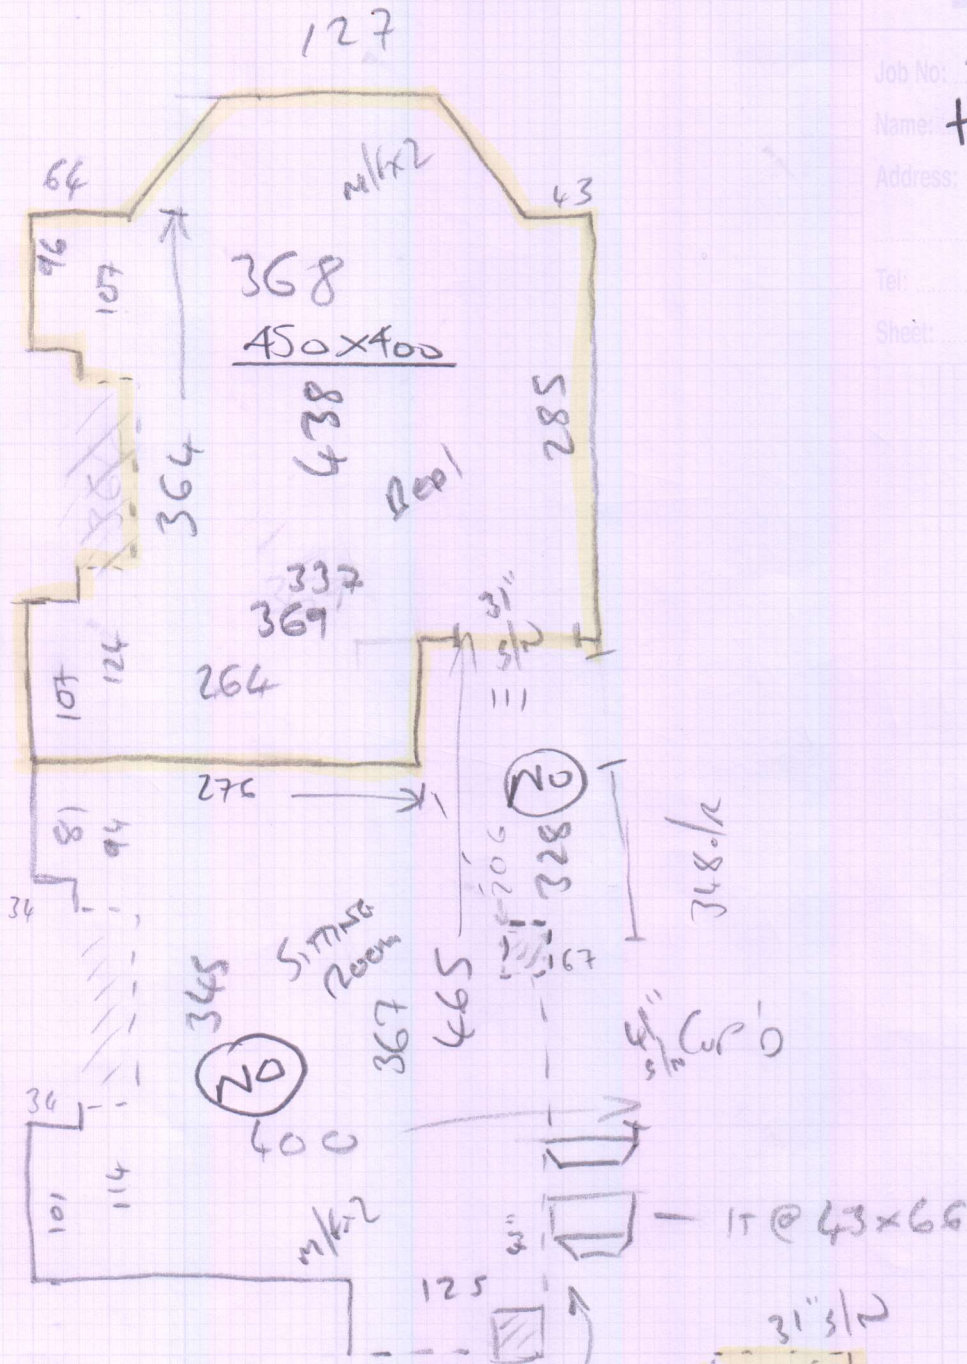 127
Job No:
Name:
Address:
Tel:
Sheet:
64
m/fx2
43
96
107
368
450x400
438
285
364
Bed 1
337
369
31"
S/N
111
124
107
264
276
NO
81
94
206
328
348 o/r
34
SITTING
ROOM
67
345
367
465
NO
Cup'd
34
400
101
114
m/fx2
1T @ 43x66
125
31" S/N